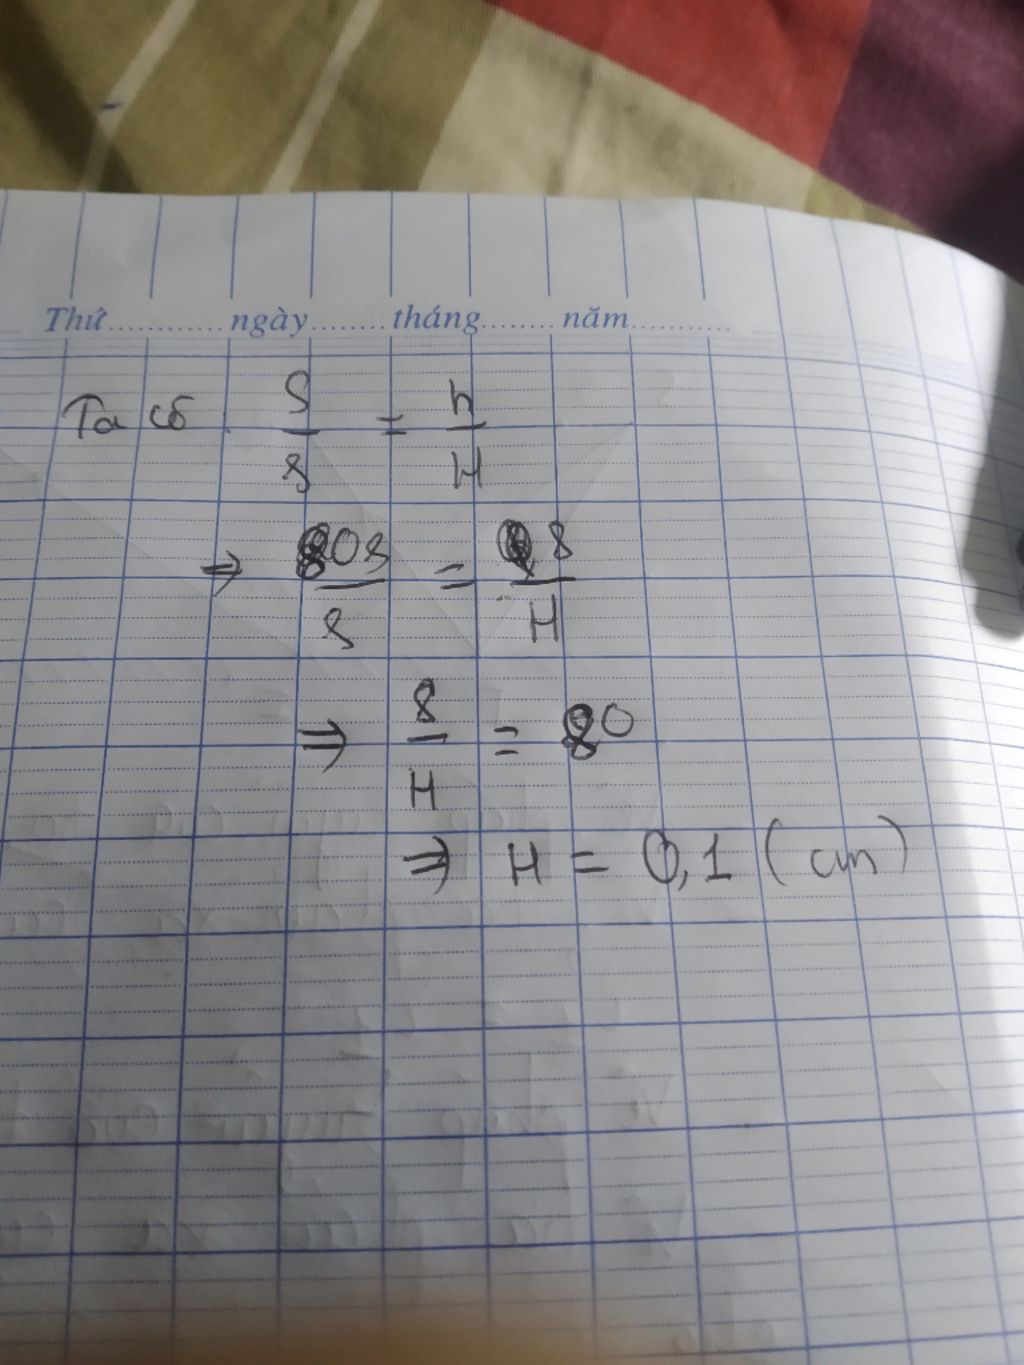 Thứ............ ngày........ tháng....... năm...........
Ta có S/s = h/H
⇒ 80s/s = 8/H
⇒ 8/H = 80
⇒ H = 0,1 (cm)